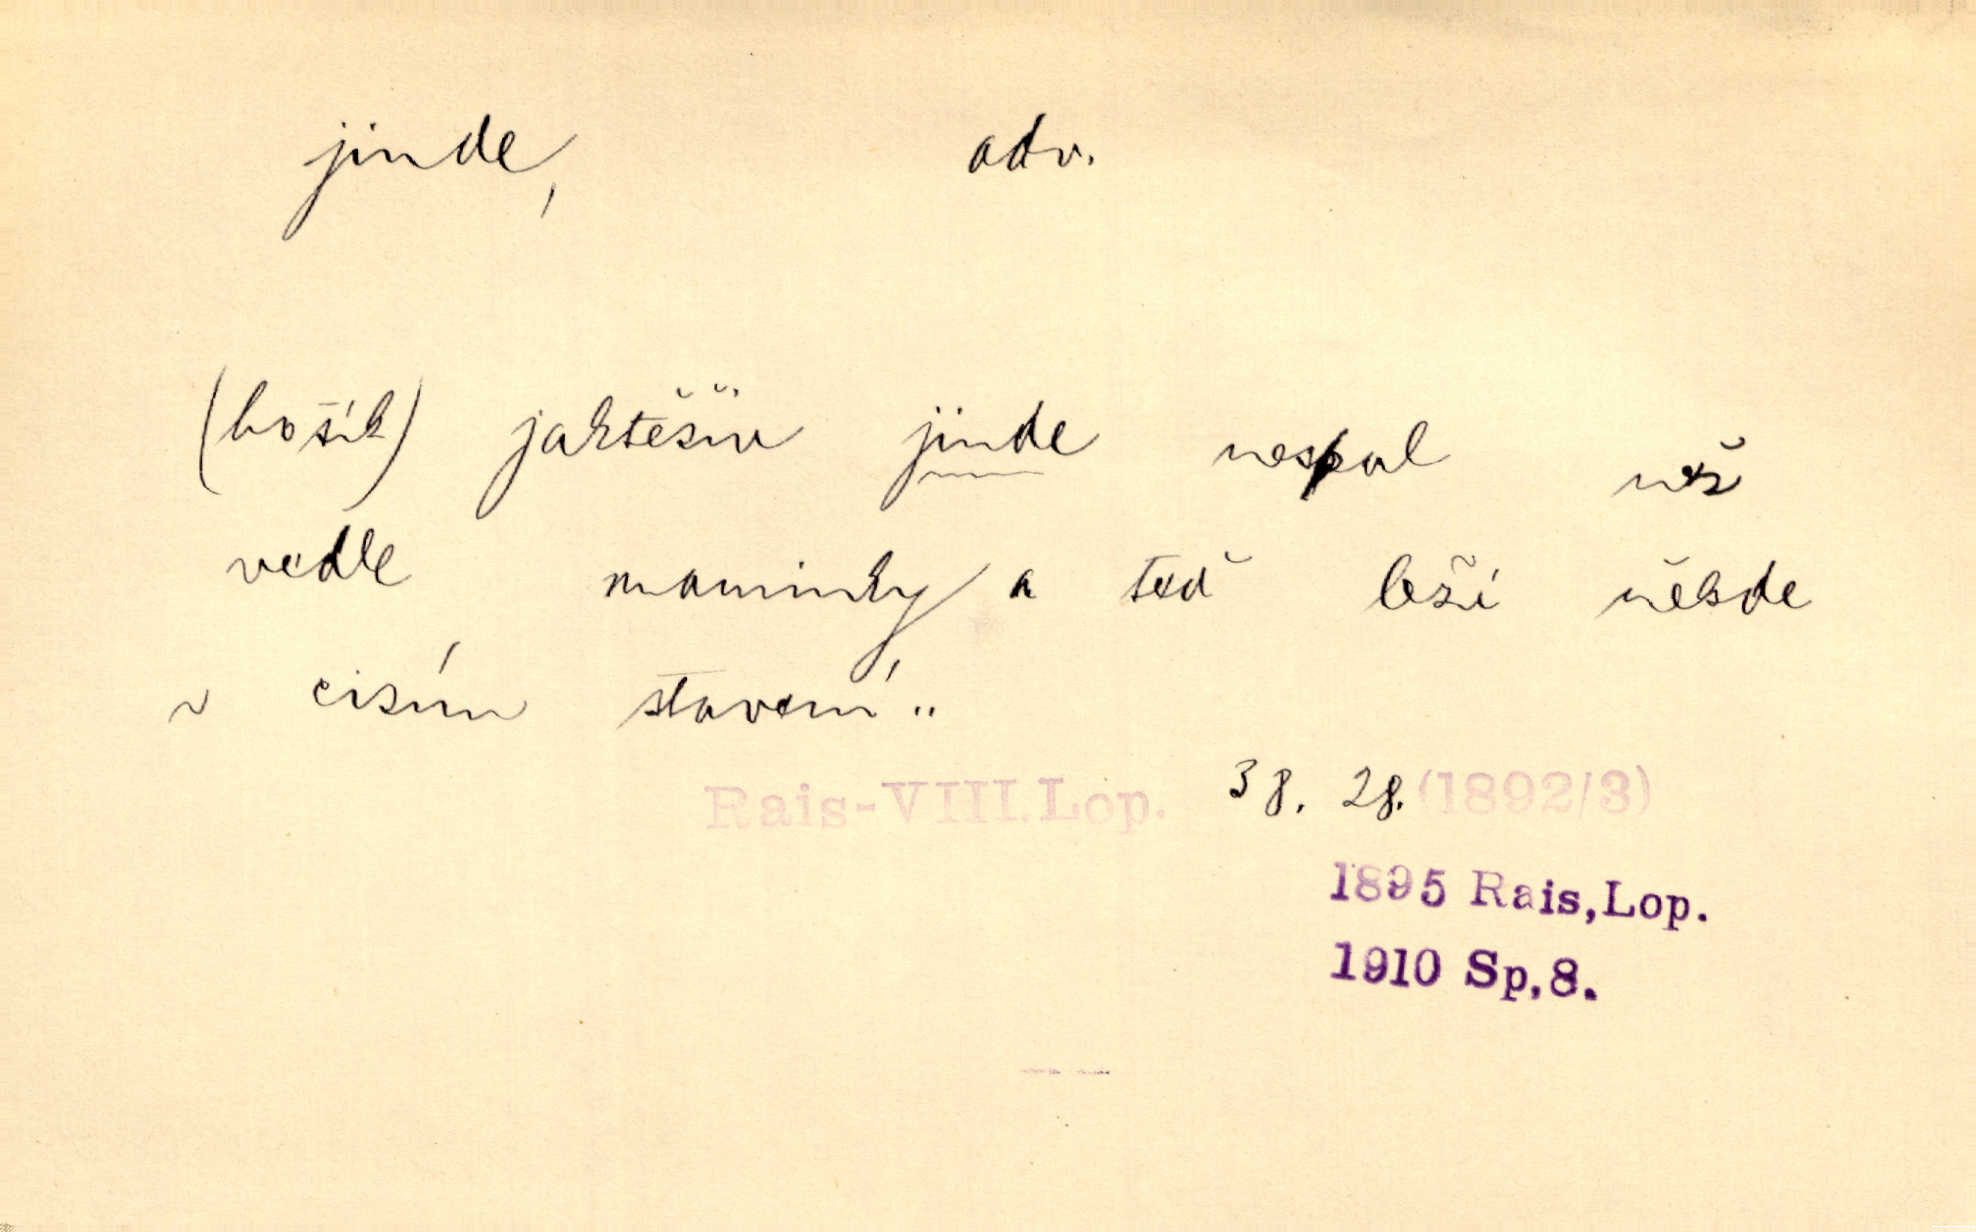 jinde, adv.
(hošík) jaktěživ jinde nespal než
vedle maminky a teď leží někde
v cizím stavení..
Rais-VIII.Lop. 38. 28. (1892/3)
1895 Rais,Lop.
1910 Sp,8.